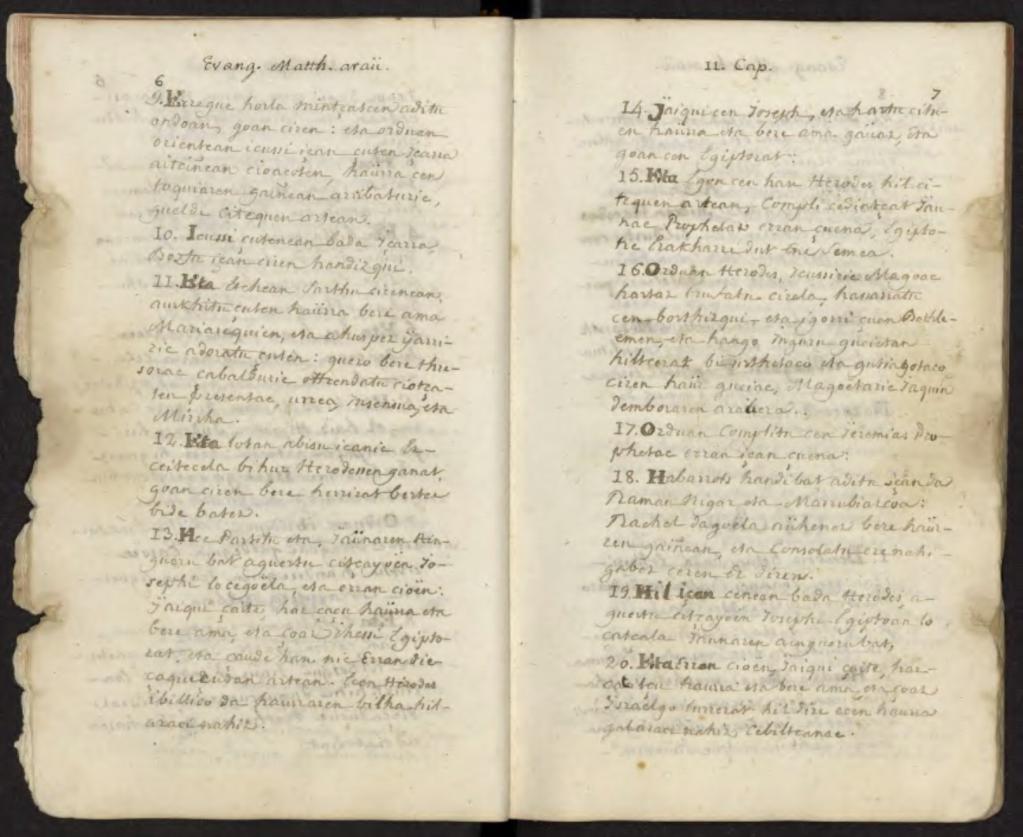 Evang. Matth. araü.
6
9. Erregue horla mintzatcen aditu
ondoan, goan ciren: eta orduan
orientean icussi içan cuten Içarra
aitcinean cioacoten, haürra cen
taquiaren gainean arrabaturic,
guelditcequen artean.
10. Icussi cutenean bada Içarra
Boztu içan ciren handizqui.
11. Eta Etchean Sarthu cirenean,
aurkhitu cuten haürra bere ama
Mariarequien, eta ahuspez jarri-
ric adoratu cuten: guero bere thre-
sorac cabalduric offrendatu ciotza-
ten presentac, urrea, Insensua, eta
Mirrha.
12. Eta lotan abisu içanic Er-
ceitecela bihur Herodesen ganat,
goan ciren bere herrirat bertce
bide batez.
13. Hec Partitu eta, Jaünaren Ain-
gueru bat aguertu citçayoen Jo-
sephi lo cegoëla, eta erran cioën:
Jaiqui çaite, har çaçu haürra eta
bere ama, eta çoaz ihessi Egipto-
rat, eta çaude han nic Erran die-
çaquezudan artean. Ecen Herodes
ibillico da haurraren bilha hil-
araci nahiz.
11. Cap.
7
14. Jaiqui cen Joseph, eta hartu citu-
en haürra eta bere ama gauaz, eta
goan cen Egiptorat:
15. Eta Egon cen han Herodes hil ci-
tequen artean, Compli cedinçat Jau-
nac Prophetaz erran çuena, Egipto-
tic Erakharri dut Ene Semea.
16. Orduan Herodes, Icussiric Magoac
hartaz trufatu cirela, hassarratu
cen borthizqui, eta igorri çuen Bethle-
emen, eta hango Inguru gucietan
hiltcerat bi urthetaco eta gutiagotaco
ciren haür guciac, Magoetaric Jaquin
demboraren arabera.
17. Orduan Complitu cen Jeremias Pro-
phetac erran içan çuena:
18. Habarrots handi bat aditu içan da
Raman Nigar eta Marrubiazcoa:
Rachel dagoëla nihenez bere haür-
ren gaiñean, eta Consolatu ere nahi
gabez ceren ez diren.
19. Hil içan cenean bada Herodes, a-
guertu citzayoen Josephi Egiptoan lo
çatçala Jaunaren aingueru bat,
20. Eta Erran cioen, Jaiqui çaite, har-
çatçu haurra eta bere ama, eta çoaz
Israëlgo lurrerat hil dire ecen haurra
galarazi nahiz cebiltçanac.